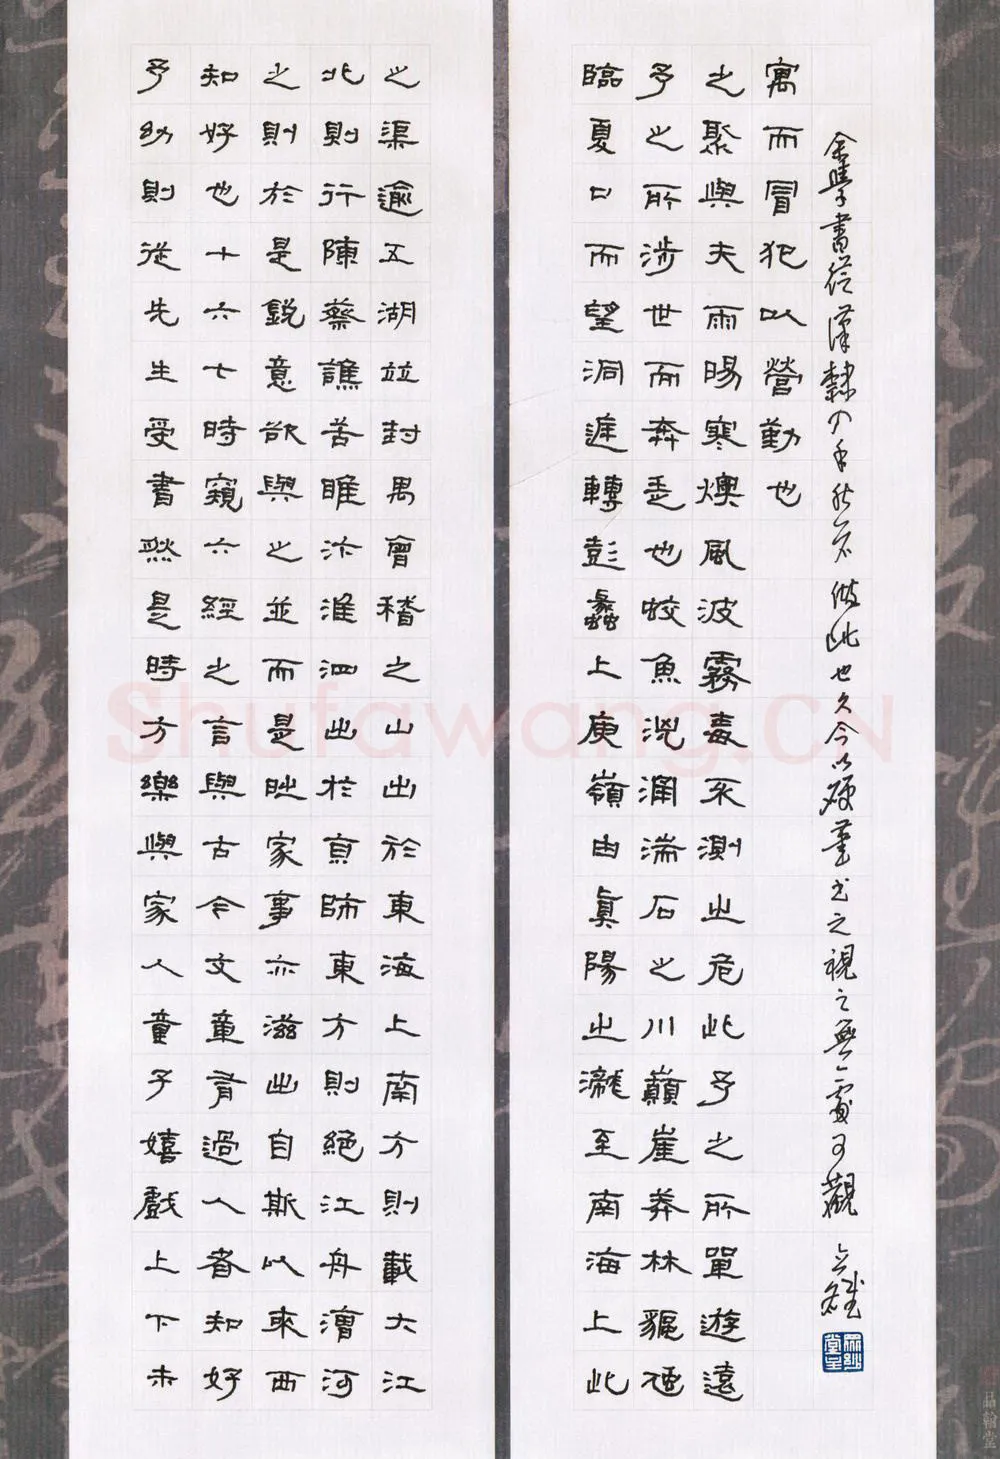 予幼則從先生受書然是時方樂與家人童子嬉戲上下未
知好也十六七時窺六經之言與古今文章有過人者知好
之則於是銳意欲與之並而是時家事亦滋出自斯以來西
北則行陳蔡譙苦睢汴淮泗出於京師東方則絕江舟漕河
之渠逾五湖並封禺會稽之山出於東海上南方則載大江
臨夏口而望洞庭轉彭蠡上庾嶺由真陽之瀧至南海上此
予之所涉世而奔走也蛟魚洶涌湍石之川巔崖莽林貙虺
之聚與夫雨暘寒燠風波霧毒不測之危此予之所單遊遠
寓而冒犯以營勤也
余學書從漢隸入手然不做此也久今以硬筆書之視之無一處可觀
Shufawang.CN
品翰堂